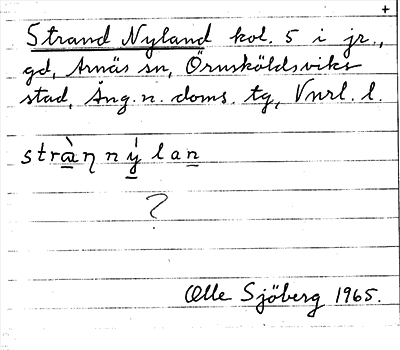 +
Strand Nyland kol. 5 i jr.,
gd, Arnäs sn, Örnsköldsviks
stad, Ång. n. doms. tg, Vnrl. l.
stràŋ ný lan
?
Olle Sjöberg 1965.